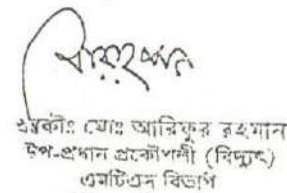 প্রকৌঃ মোঃ আরিফুর রহমান
উপ-প্রধান প্রকৌশলী (বিদ্যুৎ)
এমটিএন বিভাগ